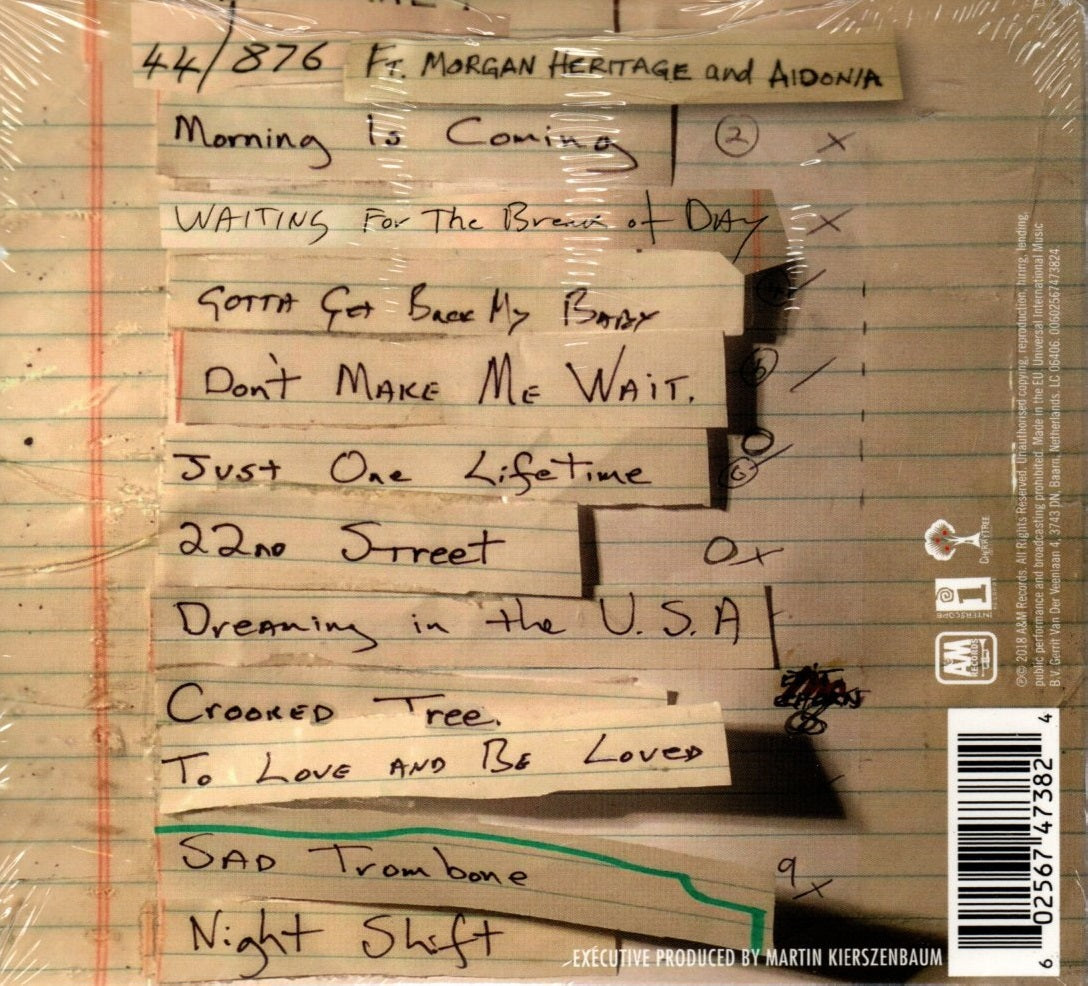 44/876 Ft. MORGAN HERITAGE and AIDONIA
Morning Is Coming 2 x
WAITING For The Break of DAY x
GOTTA Get Back My BABY
Don't MAKE ME WAIT. 6 /
Just One Lifetime 0 6
22ND Street 0x
Dreaming in the U.S.A
CROOKED Tree.
8
To LOVE AND BE LOVED
SAD Trombone 9 x
Night Shift
EXECUTIVE PRODUCED BY MARTIN KIERSZENBAUM
CHERRYTREE
INTERSCOPE
RECORDS
AM
RECORDS
℗© 2018 A&M Records. All Rights Reserved. Unauthorised copying, reproduction, hiring, lending,
public performance and broadcasting prohibited. Made in the EU. Universal International Music
B.V. Gerrit Van Der Veenlaan 4, 3743 DN, Baarn, Netherlands. LC 06406. 00602567473824
6 02567 47382 4